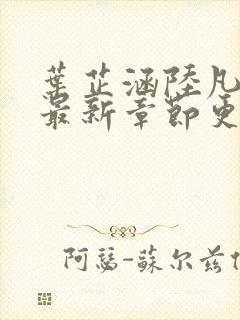 葉芷涵陸凡
最新章節更
阿瑟-蘇尔兹